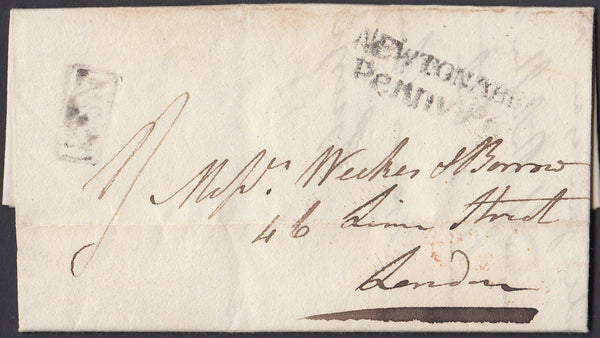 NEWTONABBOT
PENNY POST
Messrs. Weekes & Borrow
46 Lime Street
London